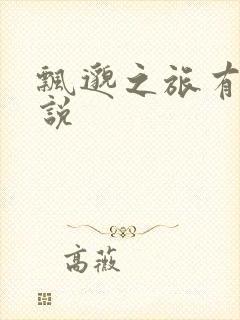 飄邈之旅有
說
高薇